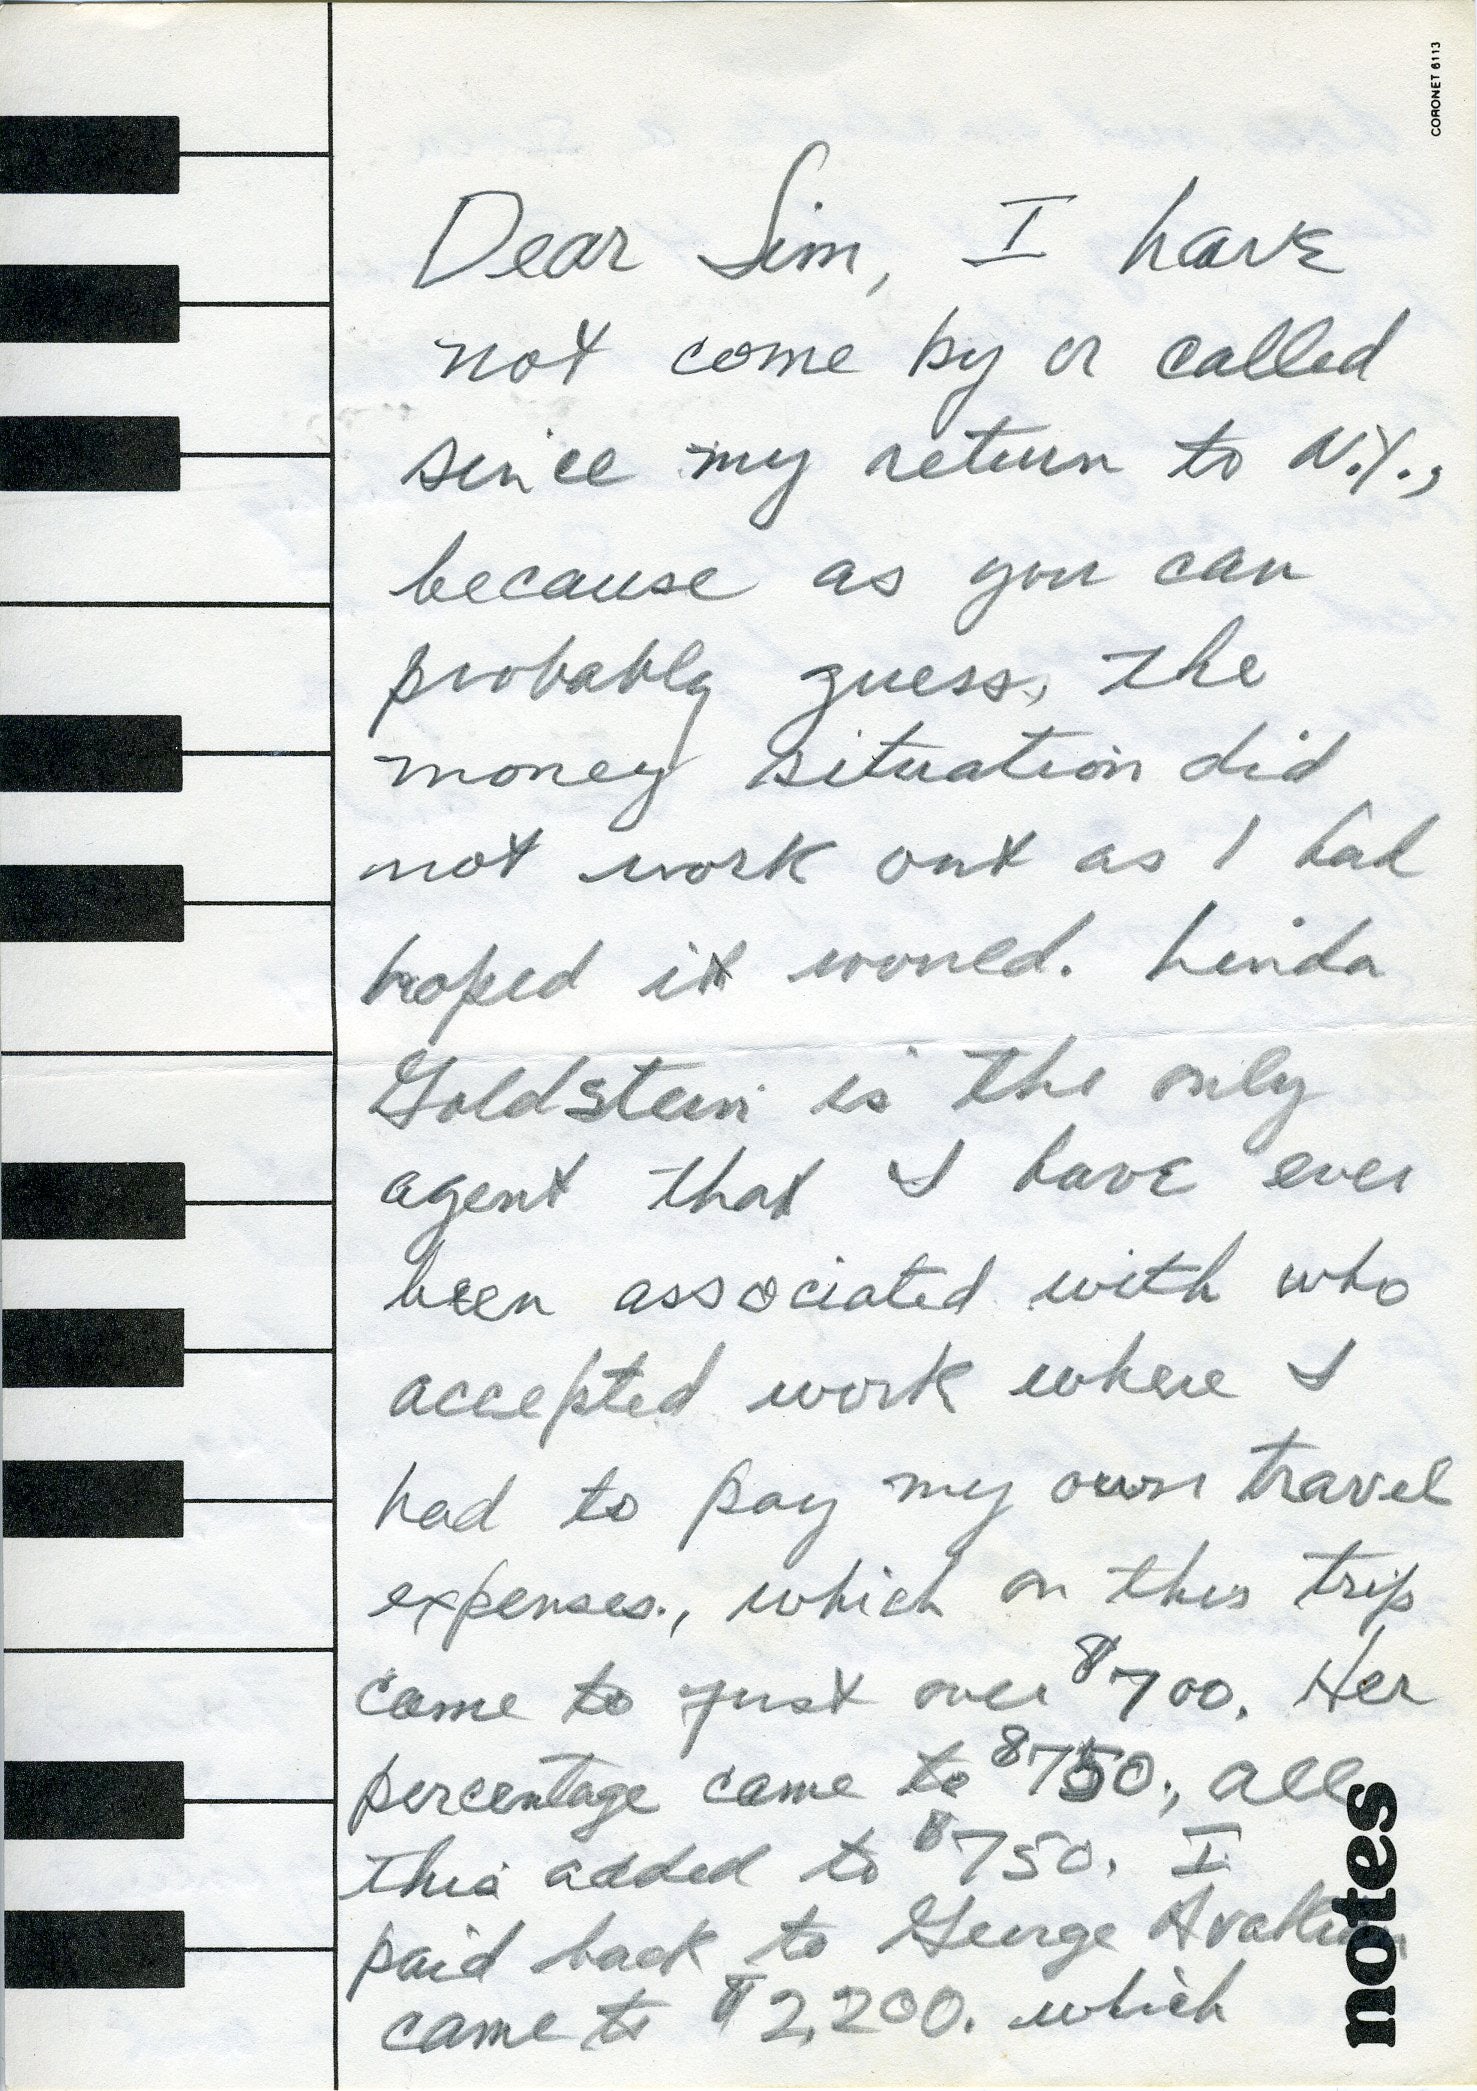 CORONET 6113
Dear Sim, I have
not come by or called
since my return to N.Y.,
because as you can
probably guess, the
money situation did
not work out as I had
hoped it would. Linda
Goldstein is the only
agent that I have ever
been associated with who
accepted work where I
had to pay my own travel
expenses., which on this trip
came to just over $700. Her
percentage came to $750., all
this added to $750. I
paid back to George Avakian
came to $2,200. which
notes